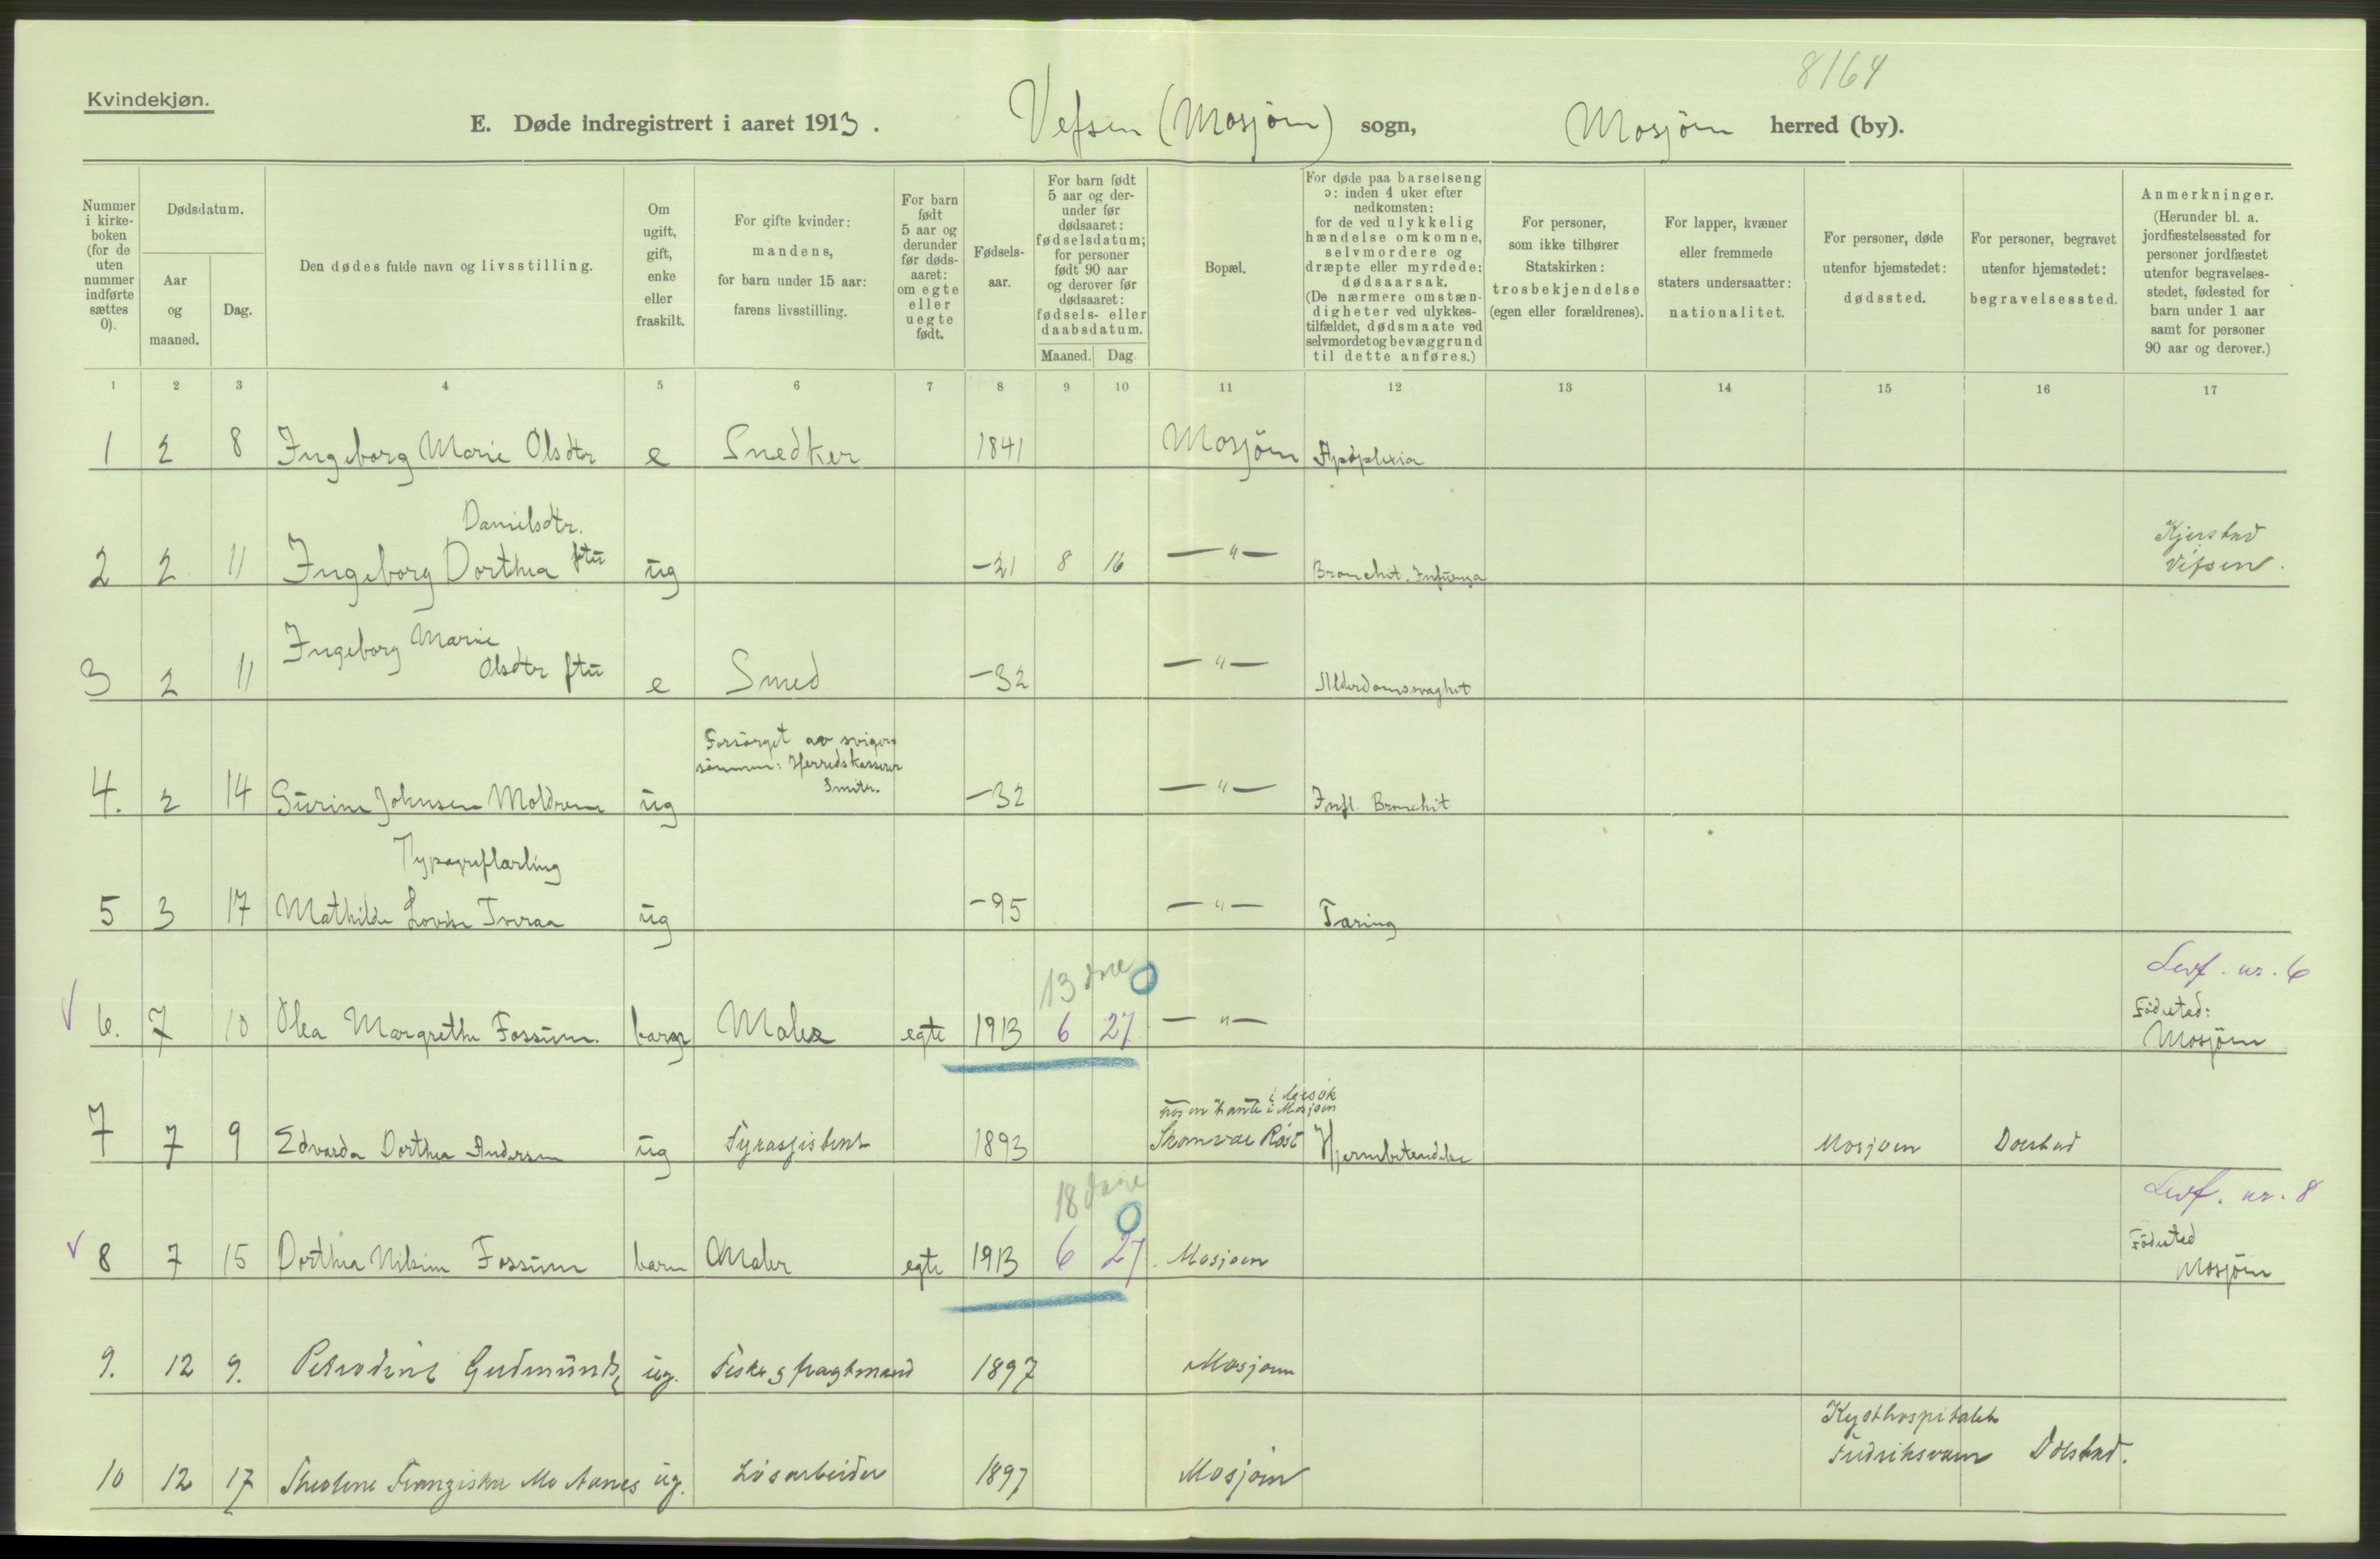 8164
Kvindekjøn.
E. Døde indregistrert i aaret 1913. Vefsen (Mosjöen) sogn, Mosjöen herred (by).
Nummer i kirkeboken (for de uten nummer indførte sættes 0).
Dødsdatum.
Aar og maaned.
Dag.
Den dødes fulde navn og livsstilling.
Om ugift, gift, enke eller fraskilt.
For gifte kvinder: mandens, for barn under 15 aar: farens livsstilling.
For barn født 5 aar og derunder før dødsaaret: om egte eller uegte født.
Fødselsaar.
For barn født 5 aar og derunder før dødsaaret: fødselsdatum; for personer født 90 aar og derover før dødsaaret: fødsels- eller daabsdatum.
Maaned. Dag.
Bopæl.
For døde paa barselseng ɔ: inden 4 uker efter nedkomsten: for de ved ulykkelig hændelse omkomne, selvmordere og dræpte eller myrdede: dødsaarsak. (De nærmere omstændigheter ved ulykkestilfældet, dødsmaate ved selvmordet og bevæggrund til dette anføres.)
For personer, som ikke tilhører Statskirken: trosbekjendelse (egen eller forældrenes).
For lapper, kvæner eller fremmede staters undersaatter: nationalitet.
For personer, døde utenfor hjemstedet: dødssted.
For personer, begravet utenfor hjemstedet: begravelsessted.
Anmerkninger. (Herunder bl. a. jordfæstelsessted for personer jordfæstet utenfor begravelsesstedet, fødested for barn under 1 aar samt for personer 90 aar og derover.)
1 2 3 4 5 6 7 8 9 10 11 12 13 14 15 16 17
1 2 8 Ingeborg Marie Olsdtr e Snedker 1841 Mosjöen Apoplexia
Danielsdtr.
2 2 11 Ingeborg Dorthea ftu ug -21 8 16 —"— Bronchit. Influenza Kjerstad Vefsen.
Ingeborg Marie
3 2 11 Olsdtr ftu e Smed -32 —"— Alderdomssvaghet
Forsörget av svigersönnen: Herredskasserer
4. 2 14 Gurine Johnsen Moldrem ug -32 —"— Infl. Bronchit
Typograflærling
5 3 17 Mathilde Lovise Tveraa ug -95 —"— Tæring
13 dage 0 Levf. nr. 6
6. 7 10 Olea Margrethe Fossum. barn Maler egte 1913 6 27 —"— Födested: Mosjöen
hos en tante i Mosjøen i besök
7 7 9 Edvarda Dorthea Andersen ug Fyrassistent 1893 Skomvær Röst Hjernebetændelse Mosjøen Dolstad
18 dage 0 Levf. nr. 8
8 7 15 Dorthea Nilsine Fossum barn Maler egte 1913 6 27 Mosjøen Födested Mosjöen
9. 12 9. Petrodine Gudmunds ug. Fisker g fragtmand 1897 Mosjøen
Kysthospitalet
10 12 17 Theoline Franziska Mo Aanes ug. Lösarbeider 1897 Mosjöen Fredriksværn Dolstad.